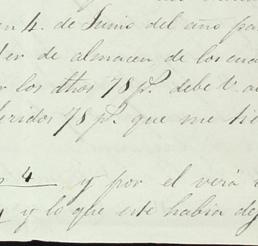 en 4. de Junio del año pa
ler de almacen de los cua
r los dhos 78 p.s debe V. a
feridos 78 p.s que me tie
4 y por el verá
y lo que este habia de